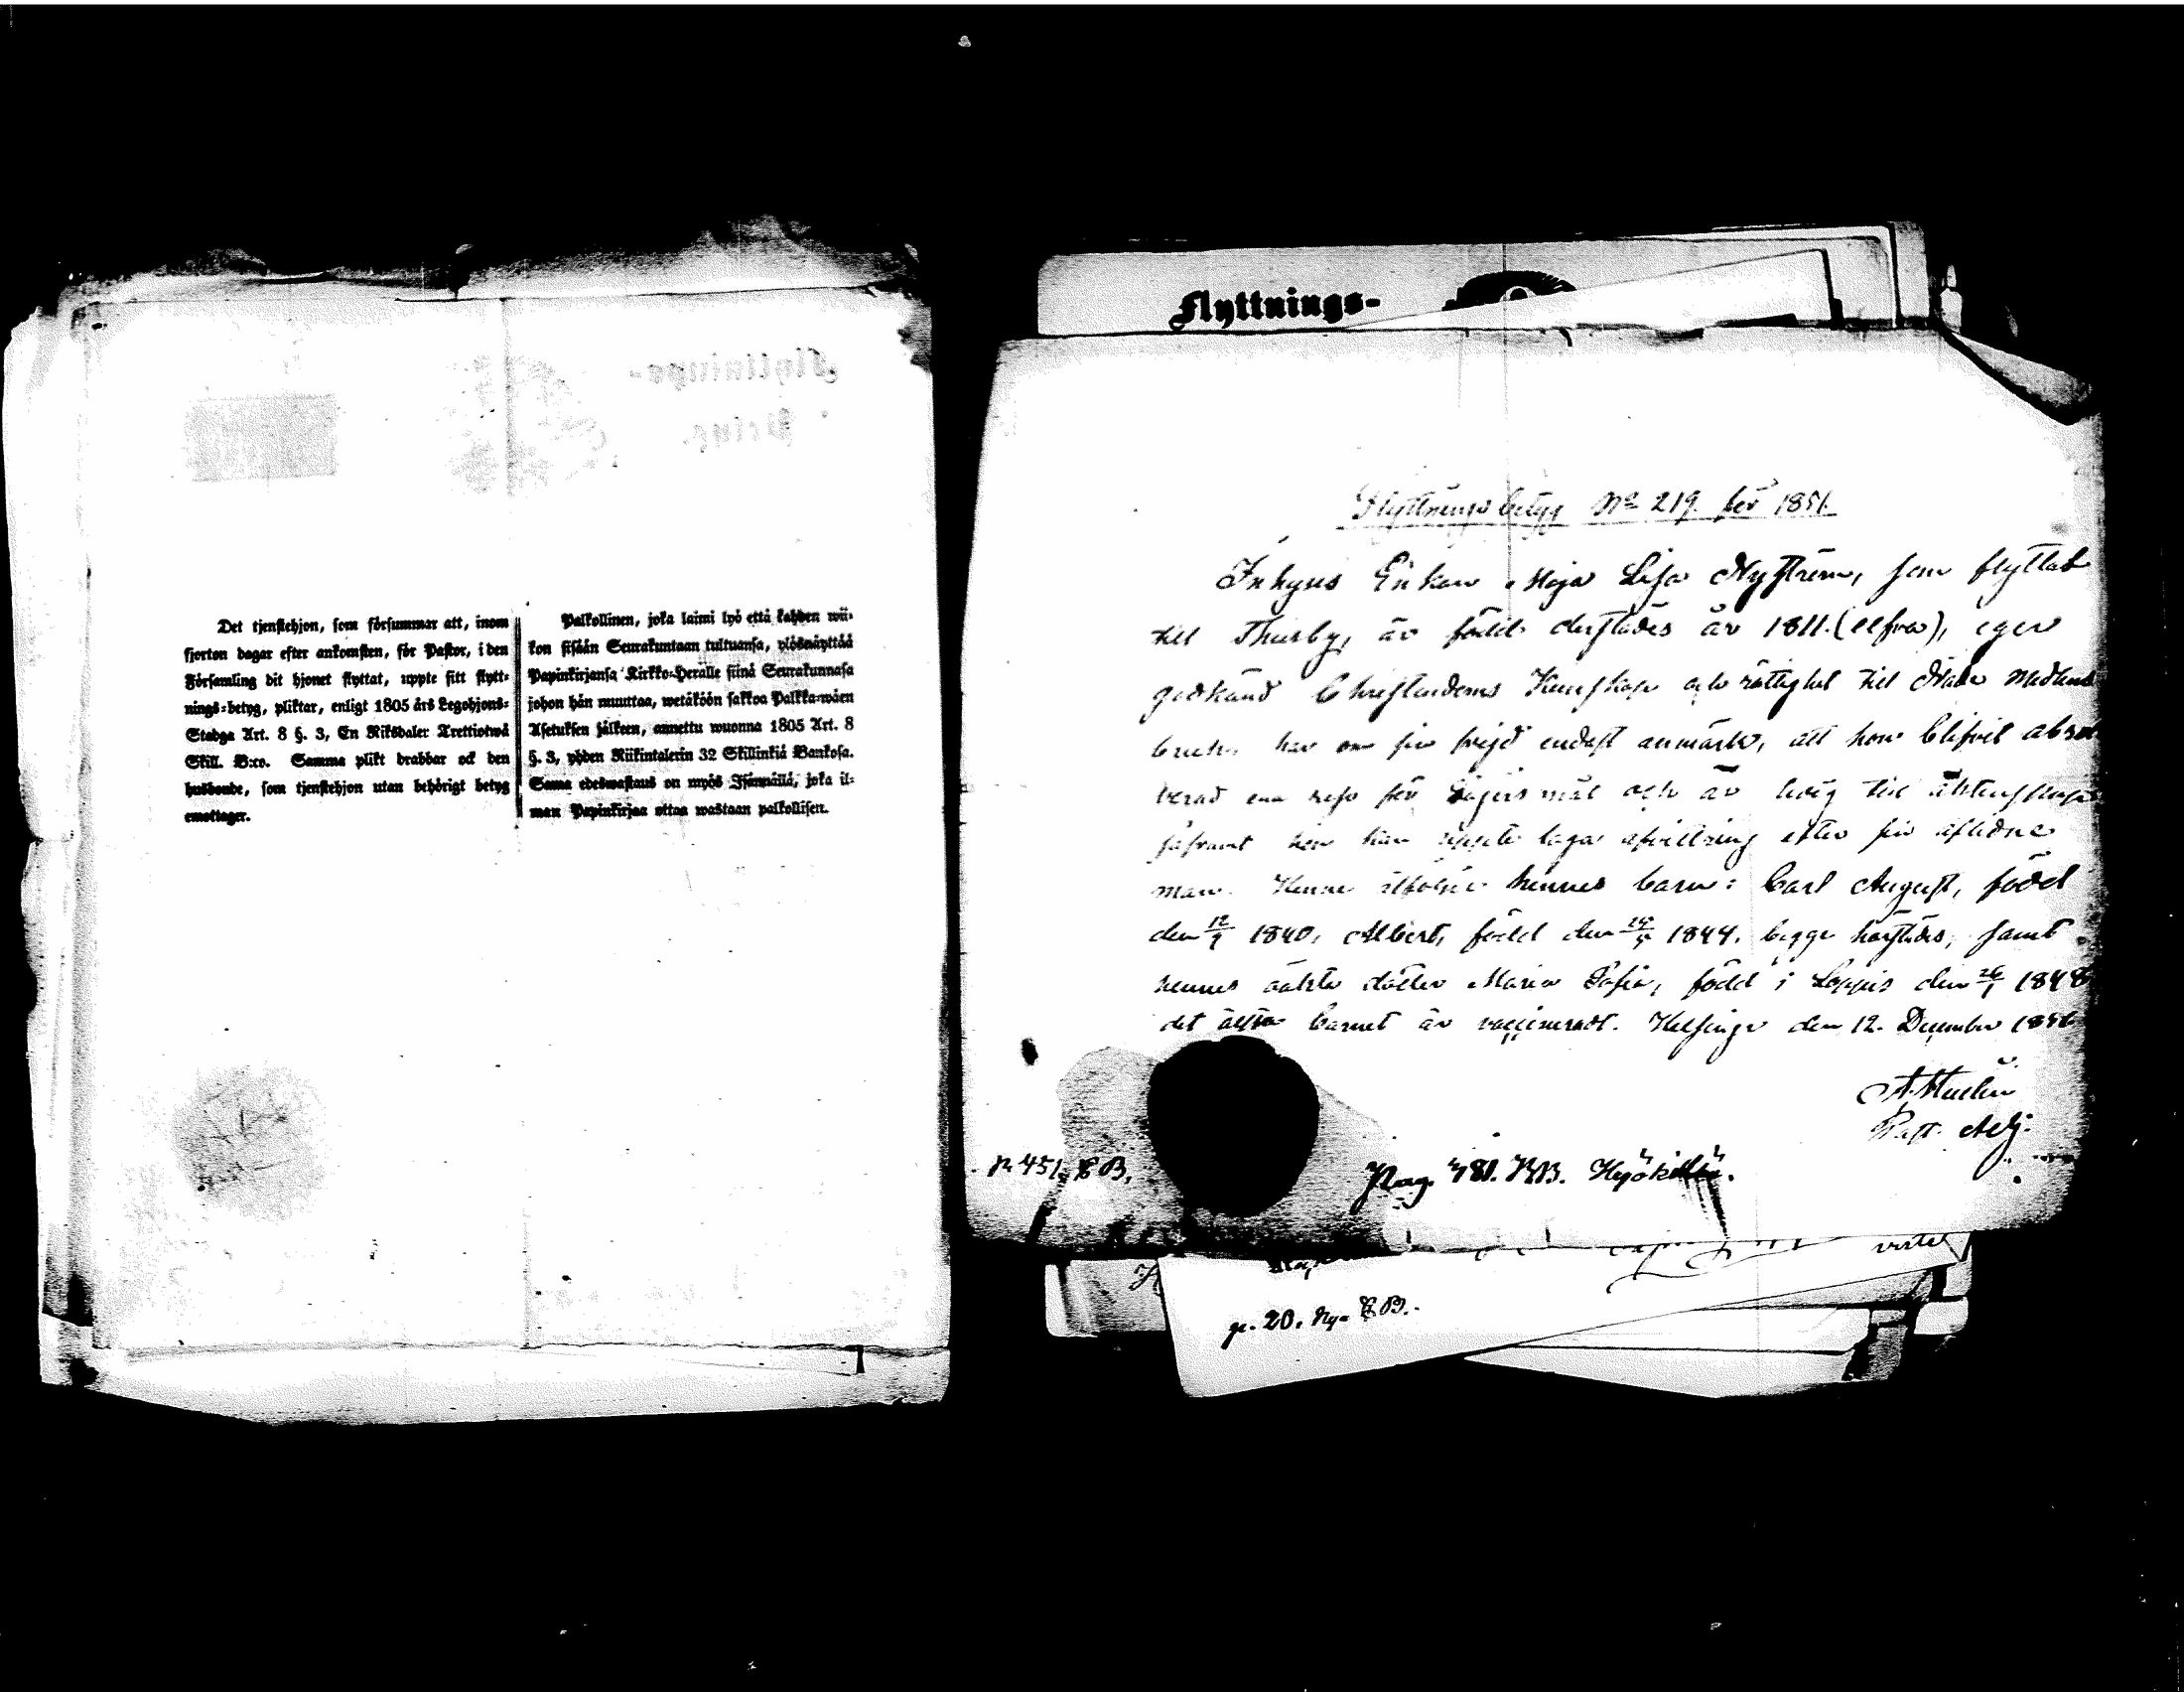 Det tjenstehjon, som försummar att, inom
fjorton dagar efter ankomsten, för Pastor, i den
Församling dit hjonet flyttat, uppte sitt flytt-
nings-betyg, pliktar, enligt 1805 års Legohjons-
Stadga Art. 8 §. 3, En Riksdaler Trettiotwå
Skill. B:co. Samma plikt drabbar ock den
husbonde, som tjenstehjon utan behörigt betyg
emottager.
Palkollinen, joka laimi lyö että kahden wii-
kon sisään Seurakuntaan tultuansa, ylösnäyttää
Papinkirjansa Kirkko-Herralle siinä Seurakunnasa
johon hän muuttaa, wetäköön sakkoa Palkka-wäen
Asetuksen jälkeen, annettu wuonna 1805 Art. 8
§. 3, yhden Riikintalerin 32 Skillinkiä Bankosa.
Sama edeswastaus on myös Isännällä, joka il-
man Papinkirjaa ottaa wastaan palkollisen.
Flyttnings-
Flyttnings betyg No 219. för 1851.
Inhyses Enkan Maja Lisa Nyström, som flyttat
till Thusby, är född derstädes år 1811. (elfva), eger
godkänd Christendoms Kunskap och rättighet till Nattv.
har om sin frejd endast anmärkt, att hon blifvit absol-
verad en resa för Lägersmål och är ledig till äktenskap
såframt hon kan laga afvittring efter sin aflidne
man. Henne åtfölja hennes barn: Carl August, född
den 12/9 1840, Albert, född den 1844, begge härstädes, samt
hennes oäkta dotter Maria Sofia, född i Loppis den 26/1 1848
det barnet är vaccineradt. Helsinge den 12. December 1851.
Past. Adj.
p. 451. B.
Pag. 481. KB. Hyökälä.
vertel
p. 20. Ny. B.